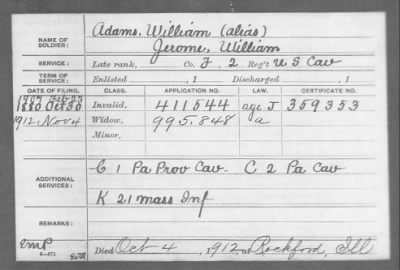 NAME OF SOLDIER: Adams, William (alias)
Jerome, William
SERVICE: Late rank, Co. J, 2 Reg't U S Cav
TERM OF SERVICE: Enlisted , 1 Discharged , 1
DATE OF FILING. CLASS. APPLICATION NO. LAW. CERTIFICATE NO.
1907 Feb 23
1880 Oct 30 Invalid, 411544 age J 359353
1912. Nov 4 Widow, 995.848 a
Minor,
ADDITIONAL SERVICES: C 1 Pa Prov Cav. C 2 Pa Cav
K 21 Mass Inf
REMARKS:
EMP
6-471
Died Oct 4, 1912, at Rockford, Ill